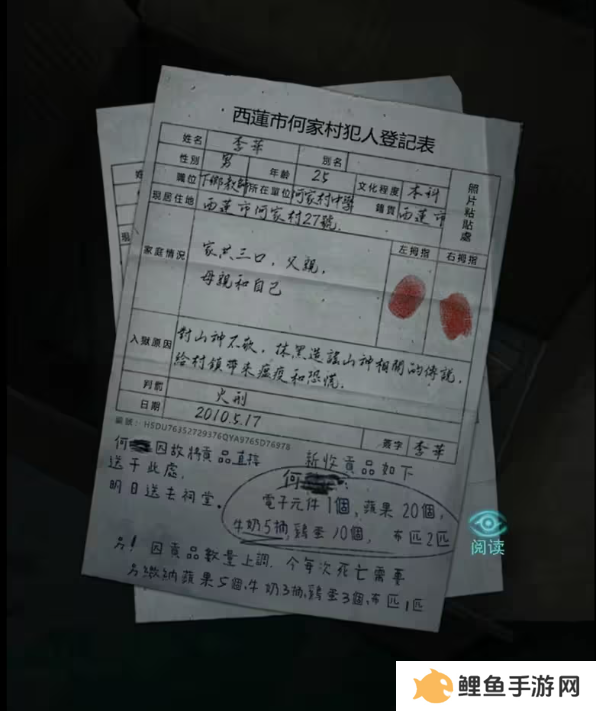 西蓮市何家村犯人登記表
姓名 李華 別名
性別 男 年齡 25 文化程度 本科
職位 下鄉教師 所在單位 何家村中學 籍貫 西蓮市
現居住地 西蓮市何家村27號
照片粘貼處
家庭情況 家共三口，父親，
母親和自己
左拇指 右拇指
入獄原因 對山神不敬，抹黑造謠山神相關的傳說，
給村鎮帶來瘟疫和恐慌。
判詞 火刑
日期 2010.5.17 簽字 李華
編號：HSDU76352729376QYA9765D76978
何 因故將貢品直接
送于此處，
明日送去祠堂。
新收貢品如下
何
電子元件1個，蘋果20個，
牛奶5抽，雞蛋10個， 布匹2匹
另！因貢品數量上調，今每次死亡需要
另繳納蘋果5個，牛奶3抽，雞蛋3個，布匹1匹
阅读
鲤鱼手游网